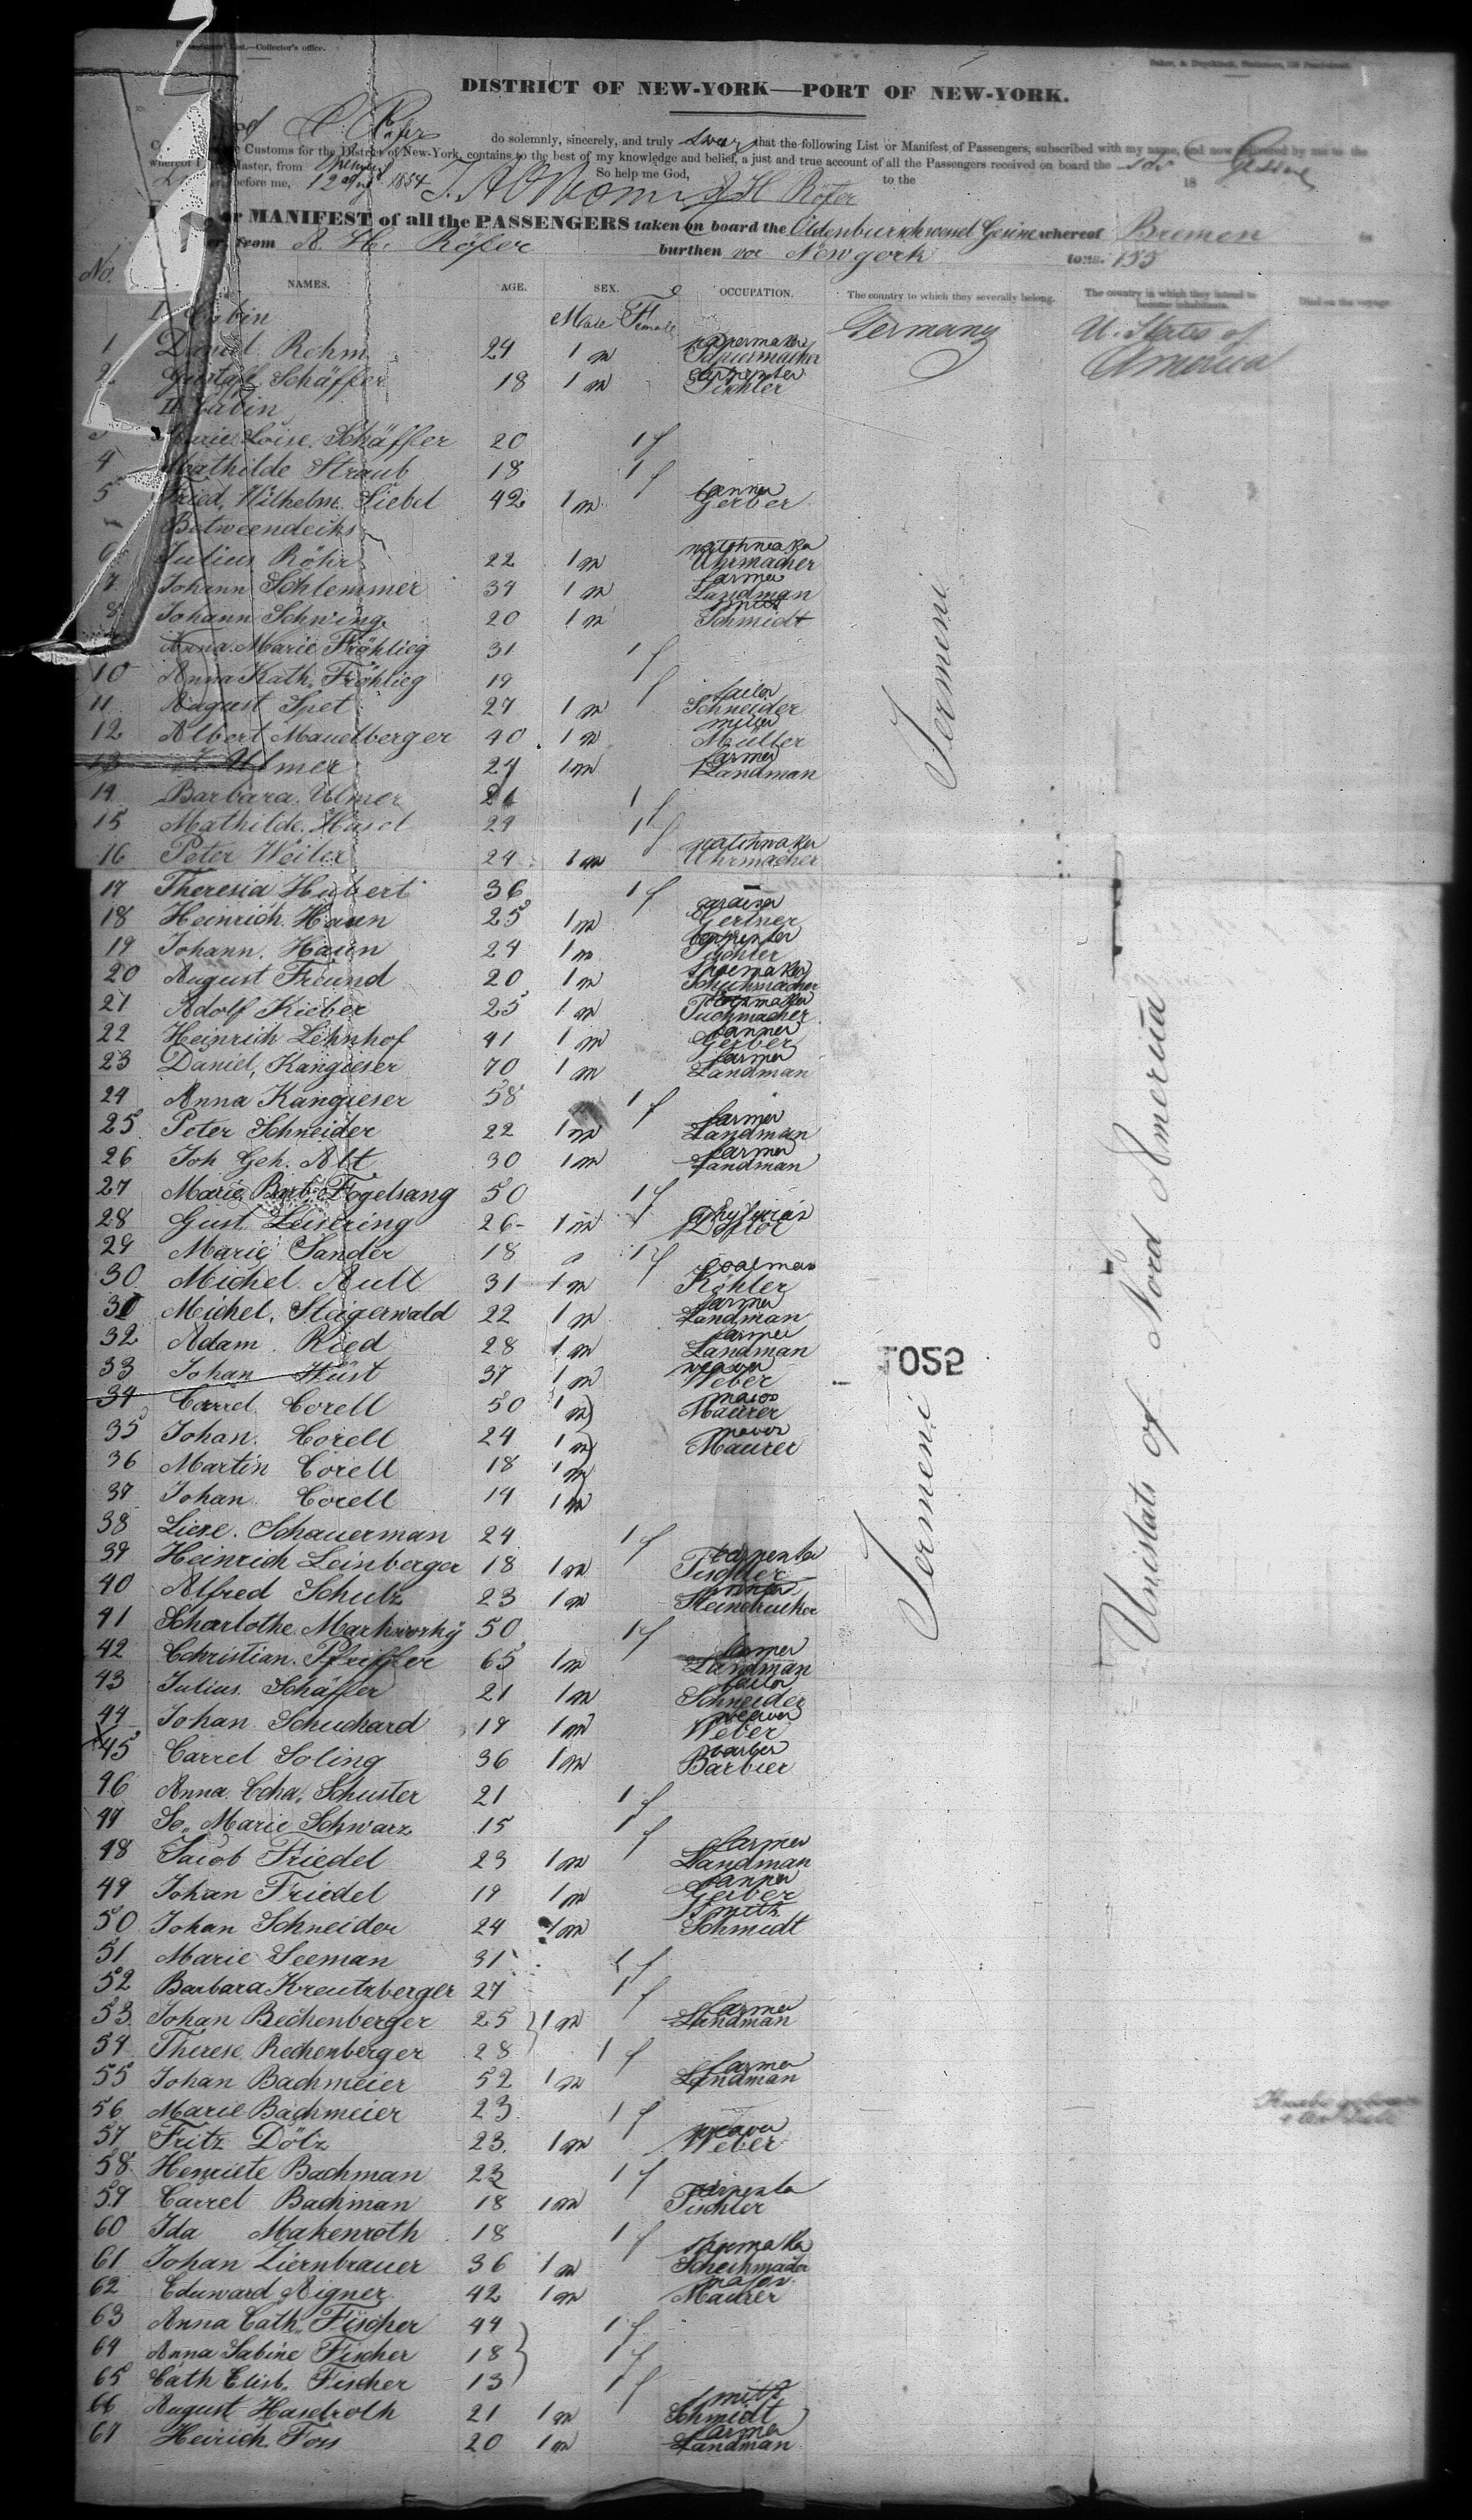 List.—Collector's office.
DISTRICT OF NEW-YORK—PORT OF NEW-YORK.
do solemnly, sincerely, and truly swear that the following List or Manifest of Passengers, subscribed with my name, and now delivered by me to the
Customs for the District of New-York, contains to the best of my knowledge and belief, a just and true account of all the Passengers received on board the
whereof Master, from Bremen So help me God, to the
before me, 1854 H Röfer 18
or MANIFEST of all the PASSENGERS taken on board the whereof Bremen
from A. H. Röfer burthen Newyork tons. 153
No. NAMES. AGE. SEX. OCCUPATION. The country to which they severally belong. The country in which they intend to become inhabitants. Died on the voyage
I Cabin Male Female Germany U. States of America
1 Daniel Rehm 24 1 m papermaker Papiermacher
2 Gustaff Schäffler 18 1 m carpenter Tischler
II Cabin
3 Marie Loise Schäffler 20 1 f
4 Mathilde Straub 18 1 f
5 Fried. Wilhelm Liebel 42 1 m tanner Gerber
Betweendeiks
6 Julius Röhr 22 1 m watchmaker Uhrmacher
7 Johann Schlemmer 34 1 m farmer Landman
8 Johann Schwing 20 1 m smith Schmidt
Anna Marie Fröhlieg 31 1 f
10 Anna Kath. Fröhlieg 19 1 f
11 August Spet 27 1 m tailor Schneider
12 Albert Mauelberger 40 1 m miller Müller
13 Ulmer 27 1 m farmer Landman
14 Barbara Ulmer 21 1 f
15 Mathilde Hasel 24 1 f
16 Peter Weiler 24 1 m watchmaker Uhrmacher
17 Theresia Hubert 36 1 f
18 Heinrich Haun 25 1 m Gertner
19 Johann Haun 24 1 m carpenter Tischler
20 August Freund 20 1 m shoemaker Schuhmacher
21 Adolf Kieber 25 1 m Tuchmacher
22 Heinrich Lehnhof 41 1 m tanner Gerber
23 Daniel Kangieser 70 1 m farmer Landman
24 Anna Kangieser 58 1 f
25 Peter Schneider 22 1 m farmer Landman
26 Joh Geh. Alt 30 1 m farmer Landman
27 Marie Barb. Fogelsang 50 1 f
28 Gust. Leisering 26 1 m physician Doctor
29 Marie Sander 18 1 f
30 Michel Ault 31 1 m coalman Köhler
31 Michel Steigerwald 22 1 m farmer Landman
32 Adam Ried 28 1 m farmer Landman
33 Johan Hüst 37 1 m weaver Weber
34 Carrel Corell 50 1 m mason Maurer
35 Johan Corell 24 1 m mason Maurer
36 Martin Corell 18 1 m
37 Johan Corell 14 1 m
38 Liese Schauerman 24 1 f
39 Heinrich Leinberger 18 1 m carpenter Tischler
40 Alfred Schulz 23 1 m printer Steindrucker
41 Scharlothe Markworky 50 1 f
42 Cchristian Pfeiffer 65 1 m farmer Landman
43 Julius Schäffer 21 1 m tailor Schneider
44 Johan Schuchard 19 1 m weaver Weber
45 Carrel Soling 36 1 m barber Barbier
46 Anna Ccha. Schuster 21 1 f
47 So. Marie Schwarz 15 1 f
48 Jacob Friedel 23 1 m farmer Landman
49 Johan Friedel 19 1 m tanner Gerber
50 Johan Schneider 24 1 m smith Schmidt
51 Marie Seeman 31 1 f
52 Barbara Kreutzberger 27 1 f
53 Johan Rechenberger 25 1 m farmer Landman
54 Therese Rechenberger 28 1 f
55 Johan Bachmeier 52 1 m farmer Landman
56 Marie Bachmeier 23 1 f
57 Fritz Dölz 23 1 m weaver Weber
58 Henriete Bachman 23 1 f
59 Carrel Bachman 18 1 m carpenter Tischler
60 Ida Makenroth 18 1 f
61 Johan Ziernbrauer 36 1 m shoemaker Schuhmacher
62 Eduward Aigner 42 1 m mason Maurer
63 Anna Cath. Fischer 44 1 f
64 Anna Sabine Fischer 18 1 f
65 Cath Elisb. Fischer 13 1 f
66 August Haselroth 21 1 m smith Schmidt
67 Heirich Foss 20 1 m farmer Landman
Jermeni
Jermeni
Unistats of Nord America